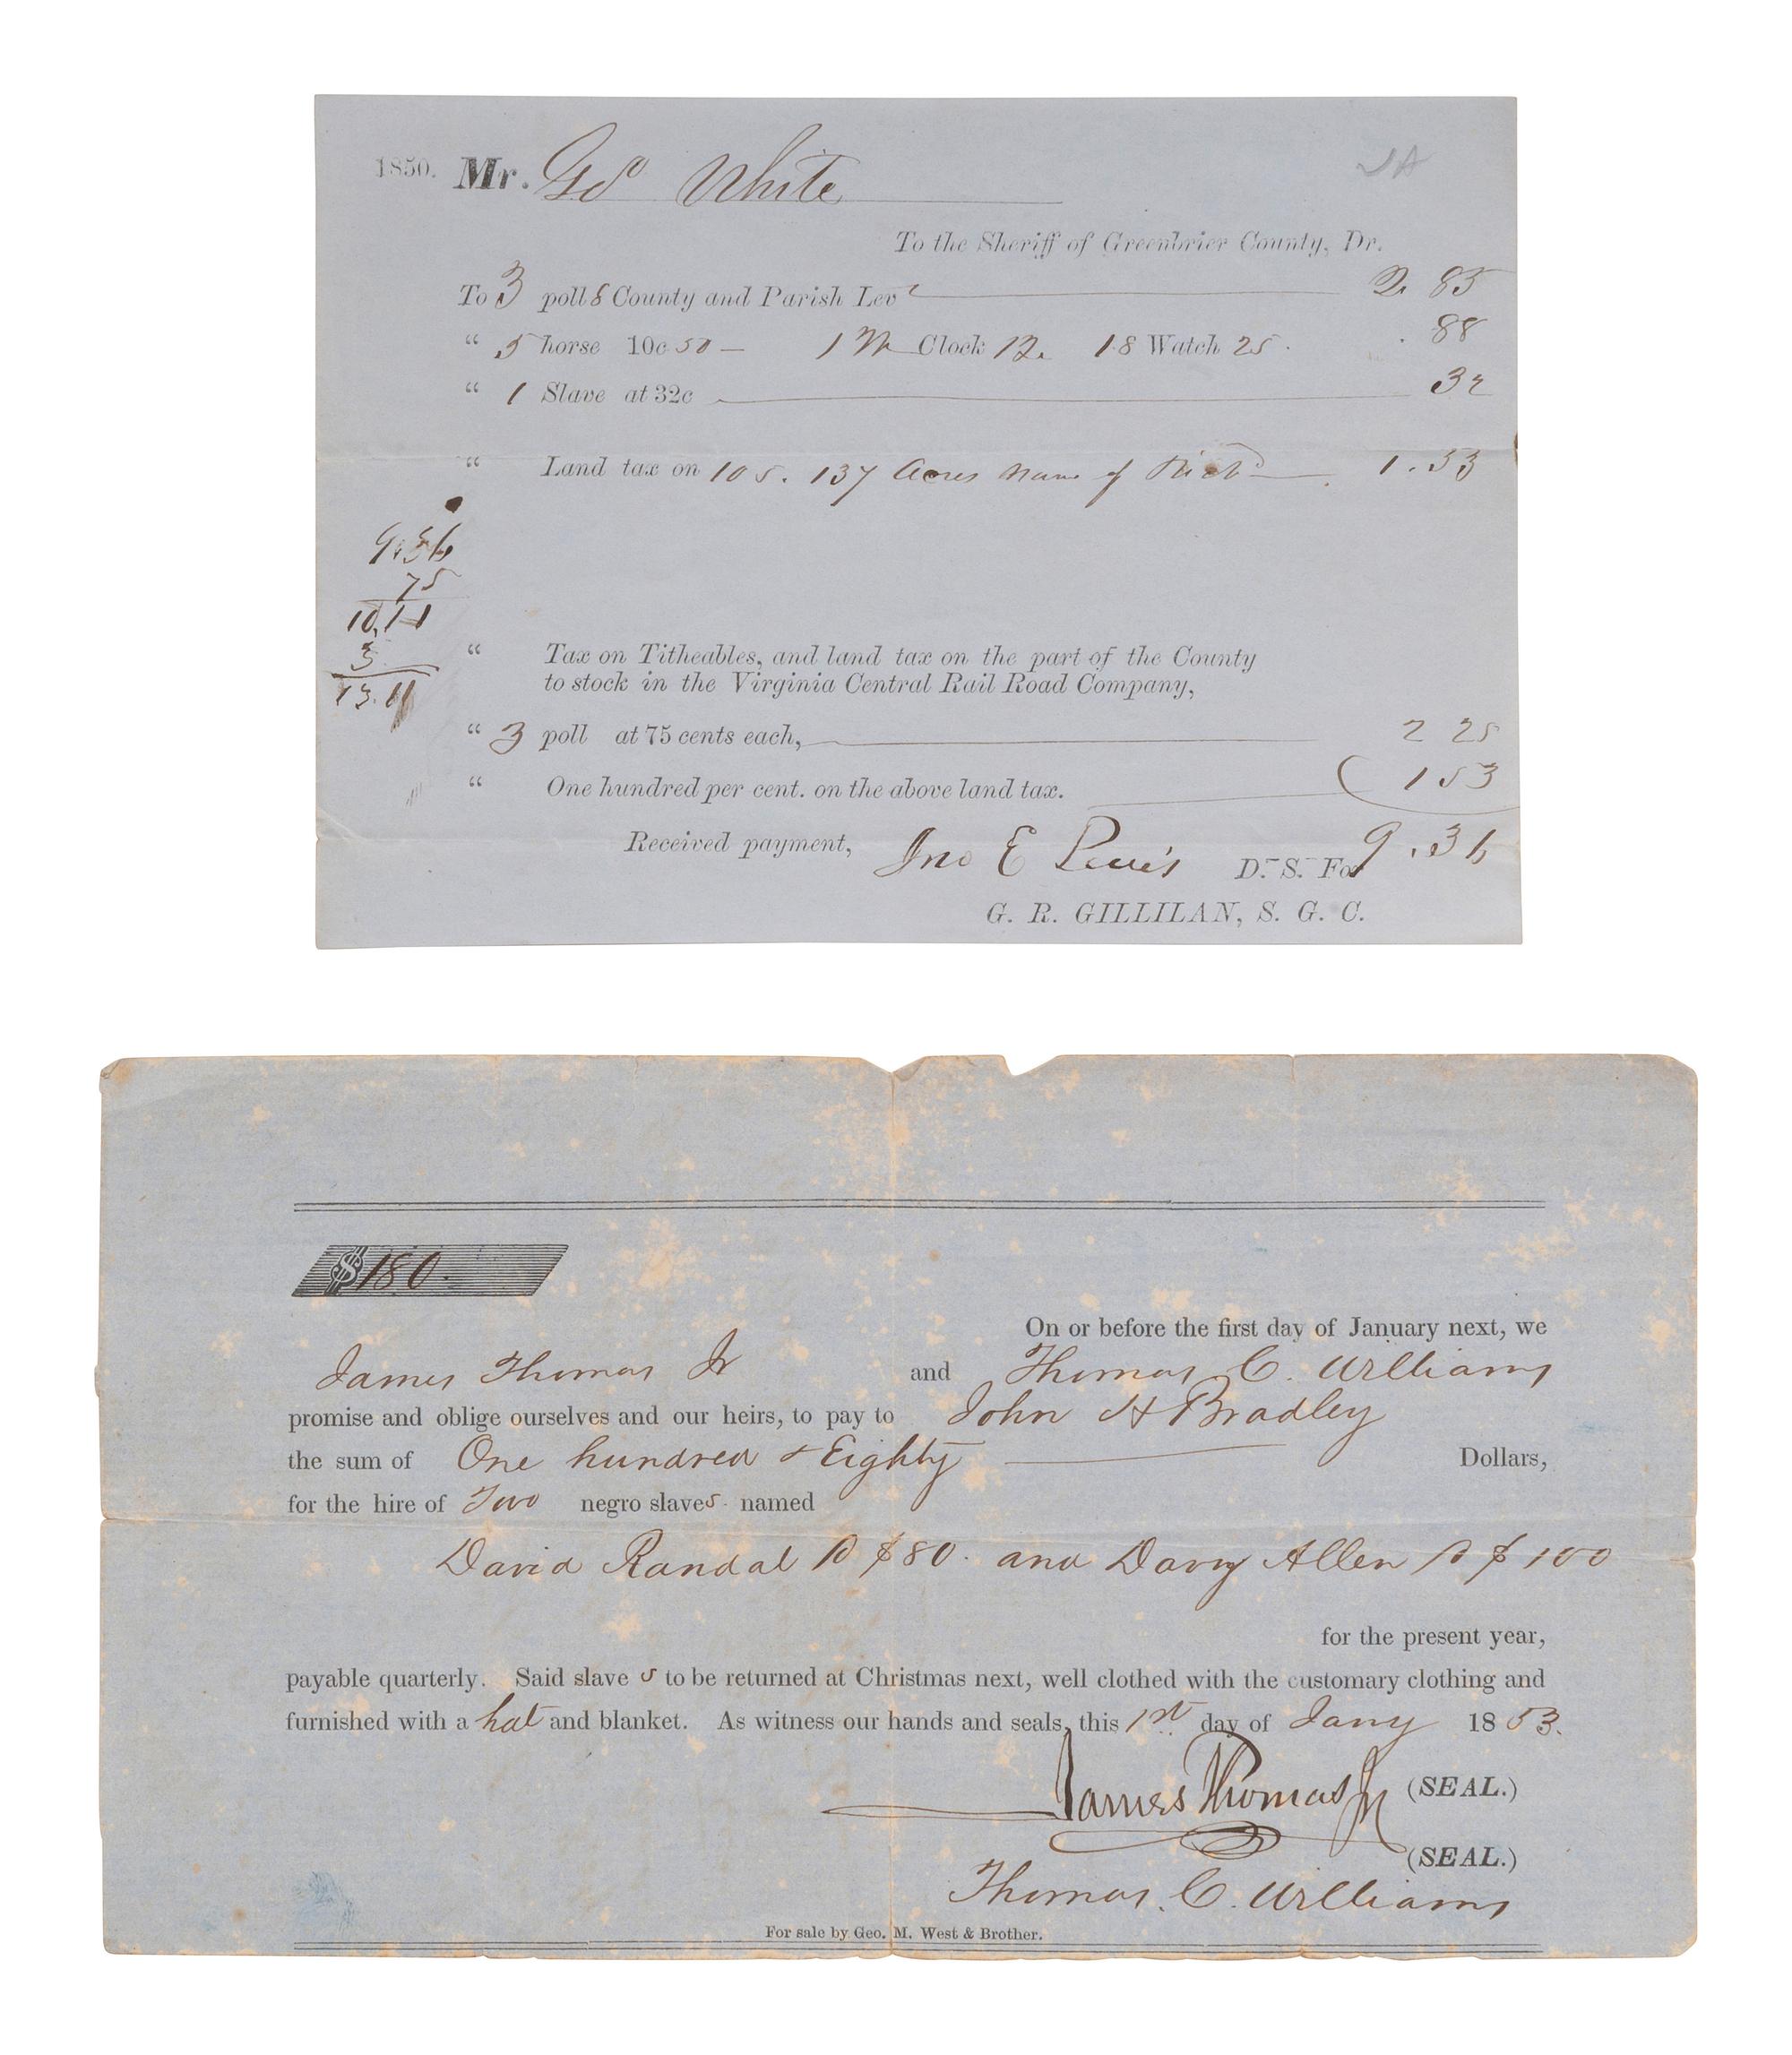 1850. Mr. Geo White
To the Sheriff of Greenbrier County, Dr.
To 3 polls County and Parish Lev 2. 85
“ 5 horse 10c 50 — 1 M Clock 12. 1 S Watch 25. .88
“ 1 Slave at 32c 32
“ Land tax on 105. 137 Acres Name of 1.53
9.36
75
10,11
3
13.11
“ Tax on Titheables, and land tax on the part of the County
to stock in the Virginia Central Rail Road Company,
“ 3 poll at 75 cents each, 2 25
“ One hundred per cent. on the above land tax. 1 53
9.36
Received payment, Jno E Lewis D. S. For
G. R. GILLILAN, S. G. C.
$180.
On or before the first day of January next, we
James Thomas Jr and Thomas C. Williams
promise and oblige ourselves and our heirs, to pay to John H Bradley
the sum of One hundred & Eighty Dollars,
for the hire of Two negro slaves named
David Randal @ $80. and Davy Allen @ $100
for the present year,
payable quarterly. Said slaves to be returned at Christmas next, well clothed with the customary clothing and
furnished with a hat and blanket. As witness our hands and seals, this 1st day of Jany 1853.
James Thomas Jr (SEAL.)
(SEAL.)
Thomas C. Williams
For sale by Geo. M. West & Brother.